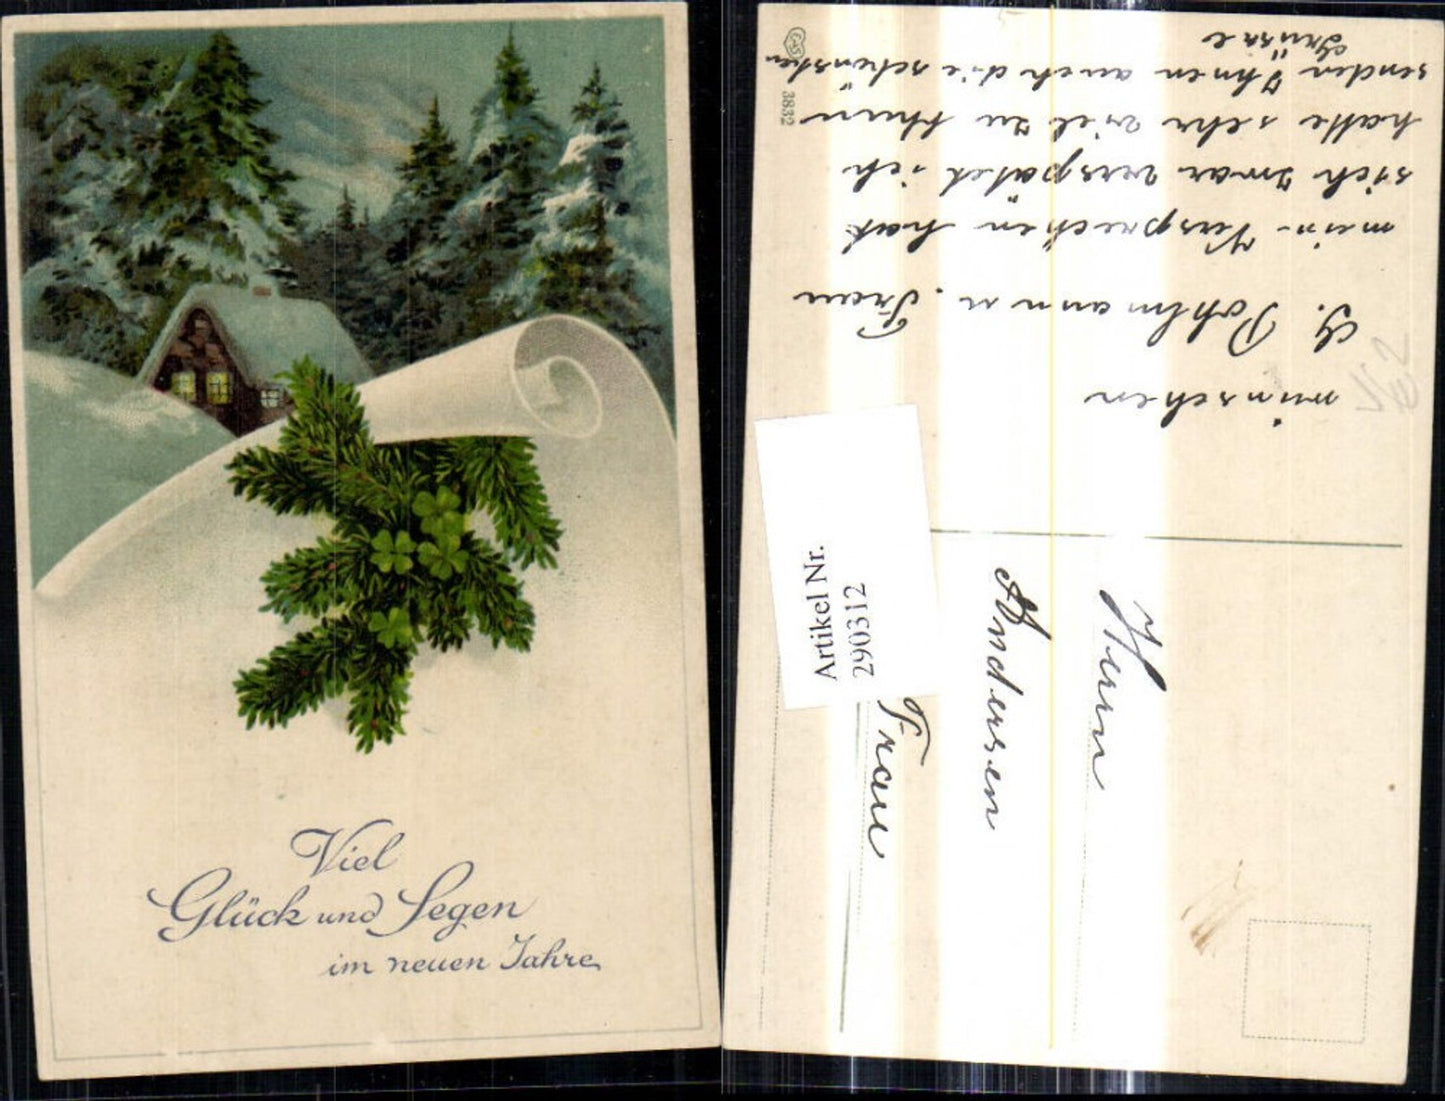 Viel
Glück und Segen
im neuen Jahre
wünschen
G. Pohlmann u. Frau
mein Versprechen hat
sich zwar verspätet ich
hatte sehr viel zu thun
senden Ihnen auch die schönsten
Grüsse
EAS
3832
Herrn
Andersen
Frau
Artikel Nr.
290312